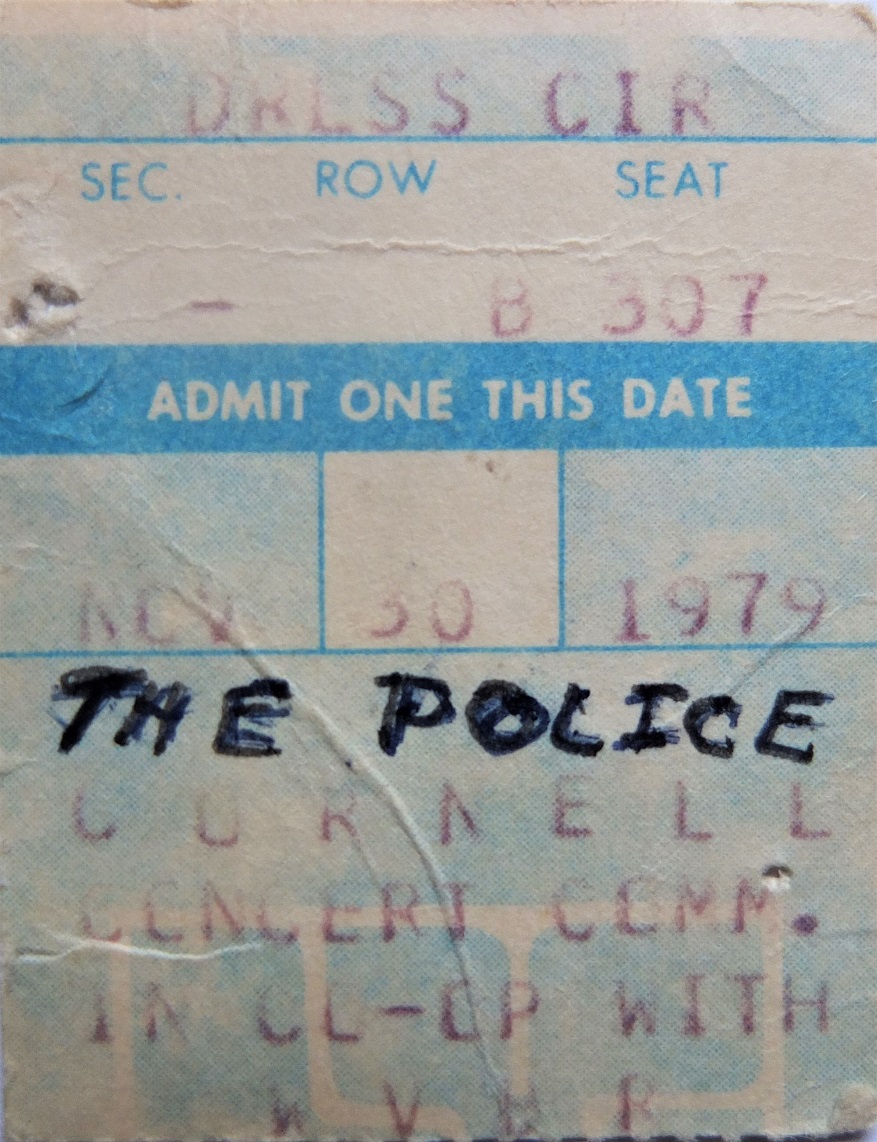 DRESS CIR
SEC. ROW SEAT
- B 307
ADMIT ONE THIS DATE
NOV 30 1979
THE POLICE
CORNELL
CONCERT COMM.
IN CO-OP WITH
WVBR